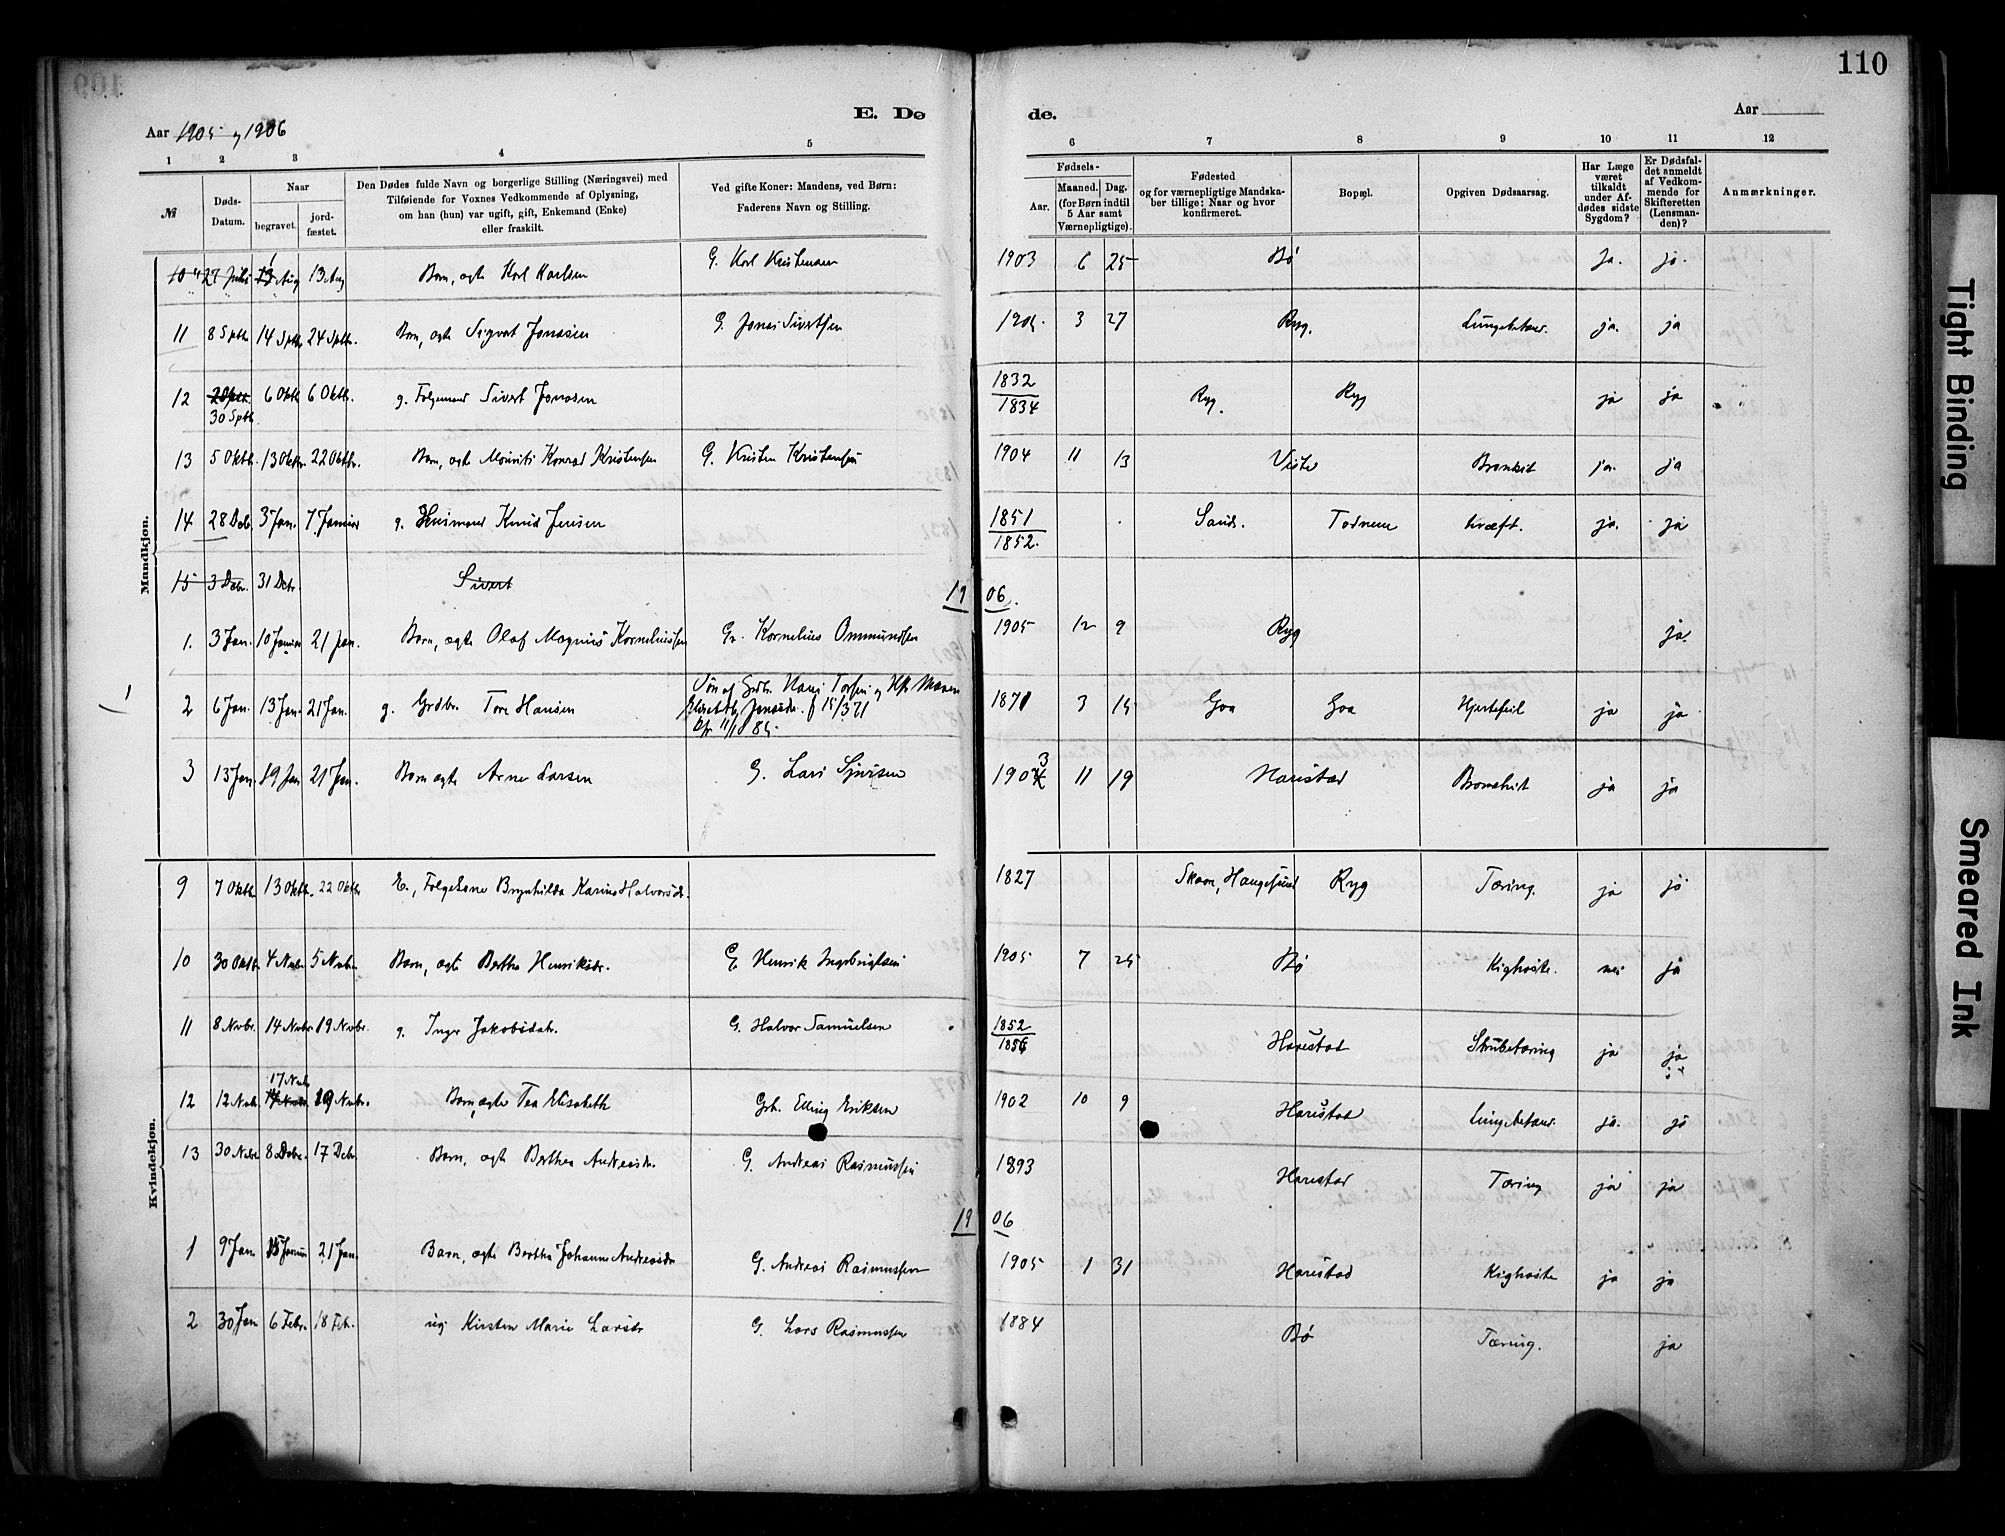 110
E. Dø
de.
Aar 1905 og 1906
Aar
1 2 3 4 5
6 7 8 9 10 11 12
№
Døds-
Datum.
Naar
begravet.
jord-
fæstet.
Den Dødes fulde Navn og borgerlige Stilling (Næringsvei) med
Tilføiende for Voxnes Vedkommende af Oplysning,
om han (hun) var ugift, gift, Enkemand (Enke)
eller fraskilt.
Ved gifte Koner: Mandens, ved Børn:
Faderens Navn og Stilling.
Fødsels-
Aar.
Maaned. Dag.
(for Børn indtil
5 Aar samt
Værnepligtige).
Fødested
og for værnepligtige Mandska-
ber tillige: Naar og hvor
konfirmeret.
Bopæl.
Opgiven Dødsaarsag.
Har Læge
været
tilkaldt
under Af-
dødes sidste
Sygdom?
Er Dødsfal-
det anmeldt
af Vedkom-
mende for
Skifteretten
(Lensman-
den)?
Anmærkninger.
Mandkjøn.
10 27 Juli 13 Aug 13 Aug Barn, ægte Karl Karlsen G. Karl Kristensen 1903 6 25 Bø Ja. ja.
11 8 Sptb. 14 Sptb. 24 Sptb. Barn, ægte Sigvart Jonasen G. Jonas Sivertsen 1905. 3 27 Ryg. Lungebetænd. ja. ja
12 30 Sptb. 6 Oktb 6 Oktb. g. Folgemand Sivert Jonasen 1832/1834 Ryg. Ryg ja ja
13 5 Oktb. 13 Oktbr. 22 Oktbr. Barn, ægte Mourits Konrad Kristensen G. Kristen Kristensen 1904 11 13 Viste Bronkit ja. ja
14 28 Deb. 3 Jan. 7 Januar g. Husmand Knud Jensen 1851/1852. Sand. Todnem kræft. ja. ja
15 3 Debr. 31 Debr. Sivert
1906.
1. 3 Jan. 10 Januar 21 Jan. Barn, ægte Olaf Magnus Korneliussen G. Kornelius Ommundsen 1905 12 9 Ryg ja.
2 6 Jan. 13 Jan. 21 Jan. g. Grdbr. Tore Hansen Søn af Grdbr. Hans Torsen og Hst. Maren
Elisabeth Jonasdr. f 15/3 71
1871 3 15 Goa Goa Hjertefeil ja ja
3 13 Jan. 19 Jan 21 Jan. Barn ægte Arne Larsen G. Lars Sjursen 1903 11 19 Harestad Bronchit ja ja
Kvindekjøn.
9 7 Oktb 13 Oktb. 22 Oktbr E., Folgekone Brynhilda Karine Halvorsdr. 1827 Skaan, Haugesund Ryg Tæring. ja ja
10 30 Oktb. 4 Nvbr. 5 Nvbr. Barn, ægte Bertha Henriksdr. G. Henrik Ingebrigtsen 1905 7 25 Bø Kighoste. nei ja
11 8 Nvbr. 14 Nvbr. 19 Nvbr. g. Inger Jakobsdatr. G. Halvor Samuelsen 1852 Harestad Strubetæring ja ja
12 12 Nvb. 17 Nvb. 19 Nvbr. Barn, ægte Tea Elisabeth Grb. Elling Eriksen 1902 10 9 Harestad Lungebetænd. ja. ja
13 30 Nvbr. 8 Debr. 17 Debr. Barn, ægte Berthea Andreasdr. G. Andreas Rasmussen 1893 Harestad Tæring ja ja
1906
1 9 Jan. 15 Januar 21 Jan. Barn, ægte Bertha Johanne Andreasdr G. Andreas Rasmussen 1905 1 31 Harestad Kighoste ja ja
2 30 Jan 6 Febr. 18 Feb. ug Kirsten Marie Larsdr G. Lars Rasmussen 1884 Bø Tæring. ja
Tight Binding
Smeared Ink